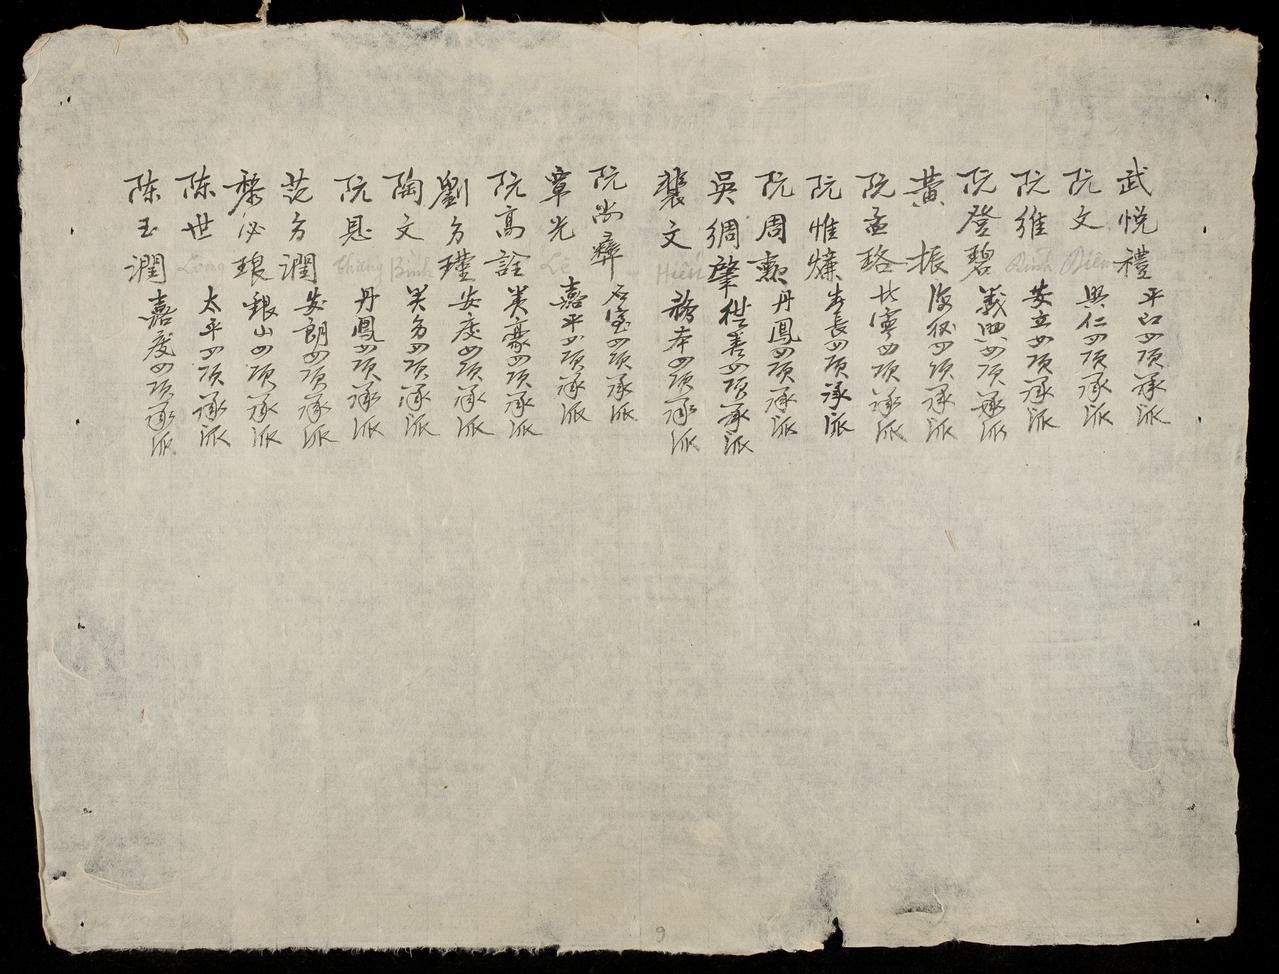 武悅禮 平江四項承派
阮文 Diên 興仁四項承派
阮維 Đỉnh 安立四項承派
阮登碧 義興四項承派
黃振 四項承派
阮孟珞 北寧四項承派
阮惟 春長四項承派
阮周 丹鳳四項承派
吳綢肇 四項承派
裴文 Hiến 務本四項承派
阮尚彞 石室四項承派
章光 Lê 嘉平四項承派
阮高詮 美豪四項承派
劉方瑾 安慶四項承派
陶文 Bính 美方四項承派
阮恩 Chẩng 丹鳳四項承派
范方潤 安朗四項承派
黎必琅 銀山四項承派
陈世 Long 太平四項承派
陈玉潤 嘉慶四項承派
9